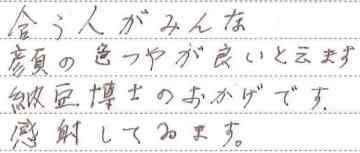 合う人がみんな
顔の色つやが良いと云ます
納豆博士のおかげです.
感射してゐます。